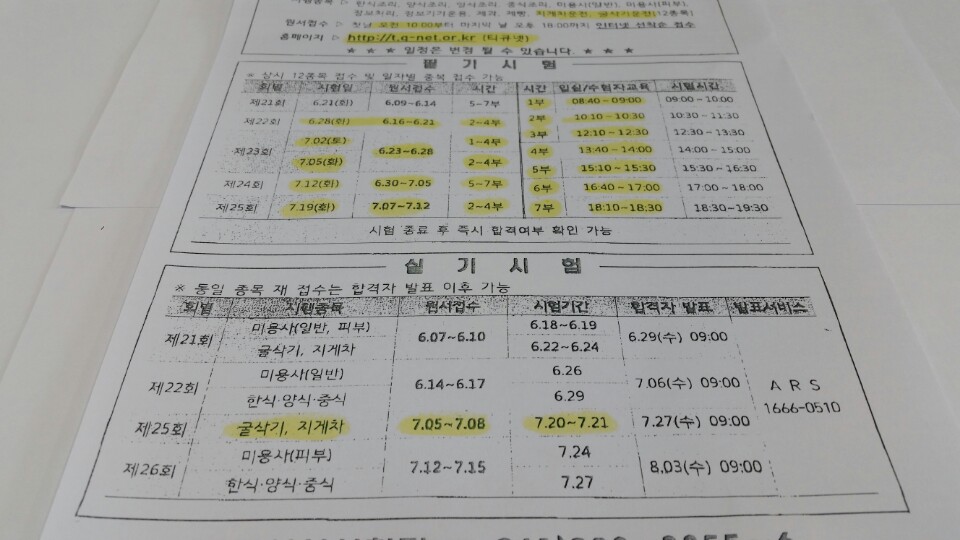 한식조리, 양식조리, 일식조리, 중식조리, 미용사(일반), 미용사(피부),
정보처리, 정보기기운용, 제과, 제빵, 지게차운전, 굴삭기운전(12종목)
원서접수 ▷ 첫날 오전 10:00부터 마지막 날 오후 18:00까지 인터넷 선착순 접수
홈페이지 ▷ http://t.q-net.or.kr (티큐넷)
★ ★ ★ 일정은 변경 될 수 있습니다. ★ ★ ★
필 기 시 험
※ 상시 12종목 접수 및 일자별 종목 접수 가능
회별 시험일 원서접수 시간 시간 입실/수험자교육 시험시간
제21회 6.21(화) 6.09~6.14 5~7부 1부 08:40~09:00 09:00~10:00
제22회 6.28(화) 6.16~6.21 2~4부 2부 10:10~10:30 10:30~11:30
3부 12:10~12:30 12:30~13:30
제23회 7.02(토) 6.23~6.28 1~4부 4부 13:40~14:00 14:00~15:00
7.05(화) 2~4부 5부 15:10~15:30 15:30~16:30
제24회 7.12(화) 6.30~7.05 5~7부 6부 16:40~17:00 17:00~18:00
제25회 7.19(화) 7.07~7.12 2~4부 7부 18:10~18:30 18:30~19:30
시험 종료 후 즉시 합격여부 확인 가능
실 기 시 험
※ 동일 종목 재 접수는 합격자 발표 이후 가능
회별 시험종목 원서접수 시험기간 합격자 발표 발표서비스
제21회 미용사(일반, 피부) 6.07~6.10 6.18~6.19 6.29(수) 09:00
굴삭기, 지게차 6.22~6.24
제22회 미용사(일반) 6.14~6.17 6.26 7.06(수) 09:00
한식·양식·중식 6.29
A R S
1666-0510
제25회 굴삭기, 지게차 7.05~7.08 7.20~7.21 7.27(수) 09:00
제26회 미용사(피부) 7.12~7.15 7.24 8.03(수) 09:00
한식·양식·중식 7.27